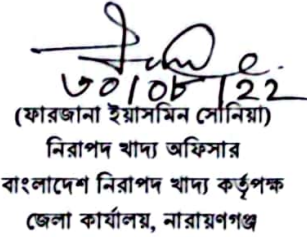 ৩০/০৮/22
(ফারজানা ইয়াসমিন সোনিয়া)
নিরাপদ খাদ্য অফিসার
বাংলাদেশ নিরাপদ খাদ্য কর্তৃপক্ষ
জেলা কার্যালয়, নারায়ণগঞ্জ